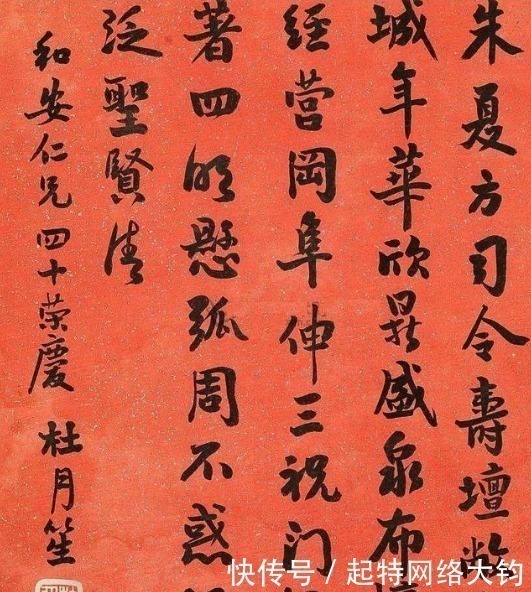 朱夏方司令壽壇
城年華欣晨盛泉布
經营岡阜伸三祝门
著四明懸弧周不惑
泛聖賢清
和安仁兄四十荣慶 杜月笙
快传号 / 起特网络大钧